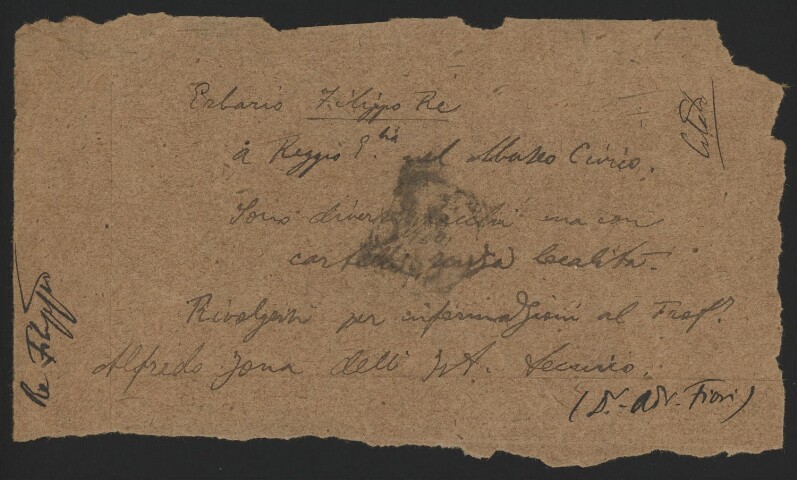 Erbario Filippo Re
à Reggio E.lia nel Museo Civico.
Sono diversi pacchi ma con
cartelli senza località.
Rivolgersi per informazioni al Prof.
Alfredo Jona dell' Ist. Tecnico.
(Dr. Adr. Fiori)
Re Filippo